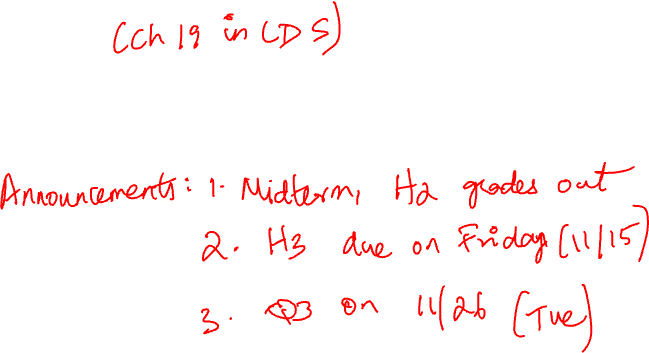 (Ch 19 in CDS)
Announcements: 1. Midterm, H2 grades out
2. H3 due on Friday (11/15)
3. Q3 on 11/26 (Tue)